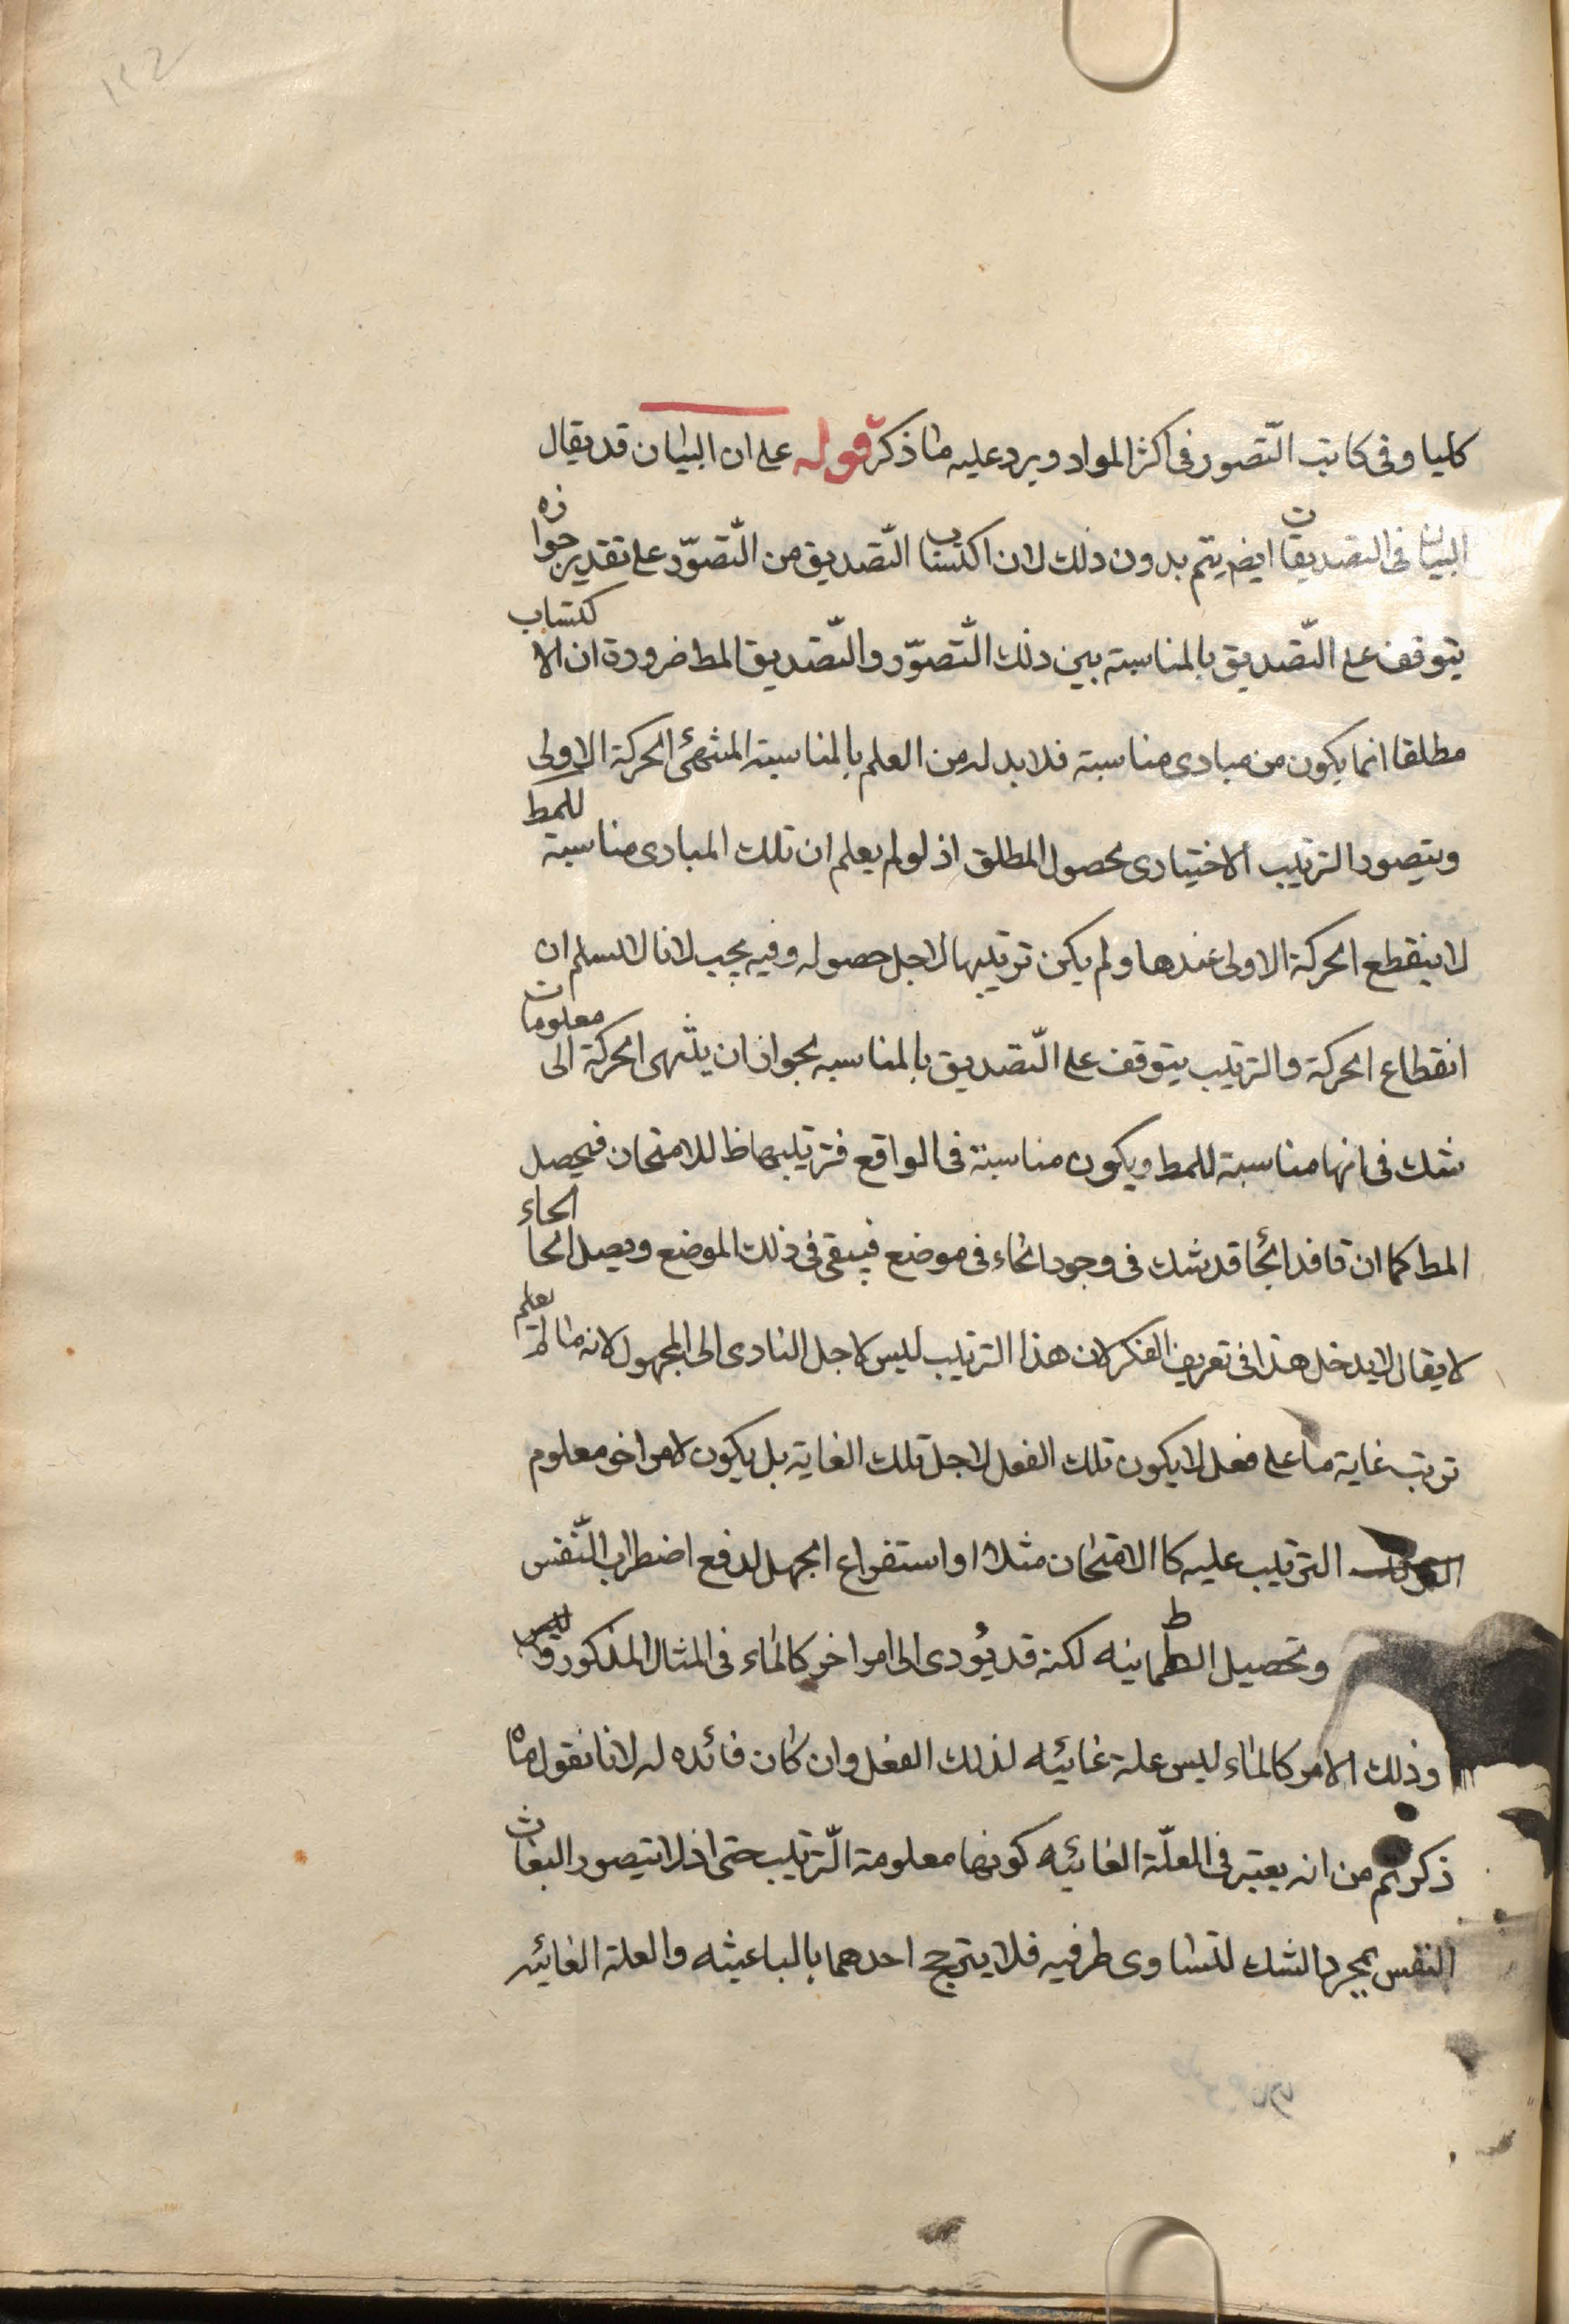 كليا وفى كاتب التّصور فى اكثر المواد ويرد عليه ما ذكر قوله على ان البيان قد يقال
البيان فى التصديقات ايض يتم بدون ذلك لان اكتساب التّصديق من التّصوّر على تقدير جوازه
يتوقف على التّصديق بالمناسبة بين ذلك التّصوّر والتّصديق المط ضرورة ان الاكتساب
مطلقا انما يكون من مبادى مناسبة فلا بد له من العلم بالمناسبة المنتهى الحركة الاولى
ويتصور الترتيب الاختيارى لحصول المطلق اذ لو لم يعلم ان تلك المبادى مناسبة للمط
لا ينقطع الحركة الاولى عندها ولم يكن ترتيبها لاجل حصوله وفيه بحيب لانا لا نسلم ان
انقطاع الحركة والترتيب يتوقف على التّصديق بالمناسبه لجواز ان ينتهى الحركة الى معلومات
شك فى انها مناسبة للمط ويكون مناسبة فى الواقع فترتيبها ظا للامتحان فيحصل
المط كما ان قافد الحا قد شك فى وجود الحاء فى موضع فيبقى فى ذلك الموضع ويصل الحا الحاء
لا يقال لا يدخل هذا فى تعريف الفكر لان هذا الترتيب ليس لاجل التادى الى المجهول لانه ما لم يعلم
ترتب غاية ما على فعل لا يكون تلك الفعل لاجل تلك الغاية بل يكون لامر اخر معلوم
الترتيب عليه كا الامتحان مثلا او استفراع الجهل لدفع اضطراب النّفس
وتحصيل الطمانينه لكنه قد يؤدى الى امر اخر كالماء فى المثال المذكور وليس
وذلك الامر كالماء ليس علة غائيه لذلك الفعل وان كان فائده له لانا نقول ما
ذكرتم من انه يعتبر فى العلّة الغائيه كونها معلومة التّرتيب حتى اذ لا يتصور البعاث
النفس بمجرد الشك لتساوى طرفيه فلا يترجح احدهما بالباعيثه والعلة الغائيه